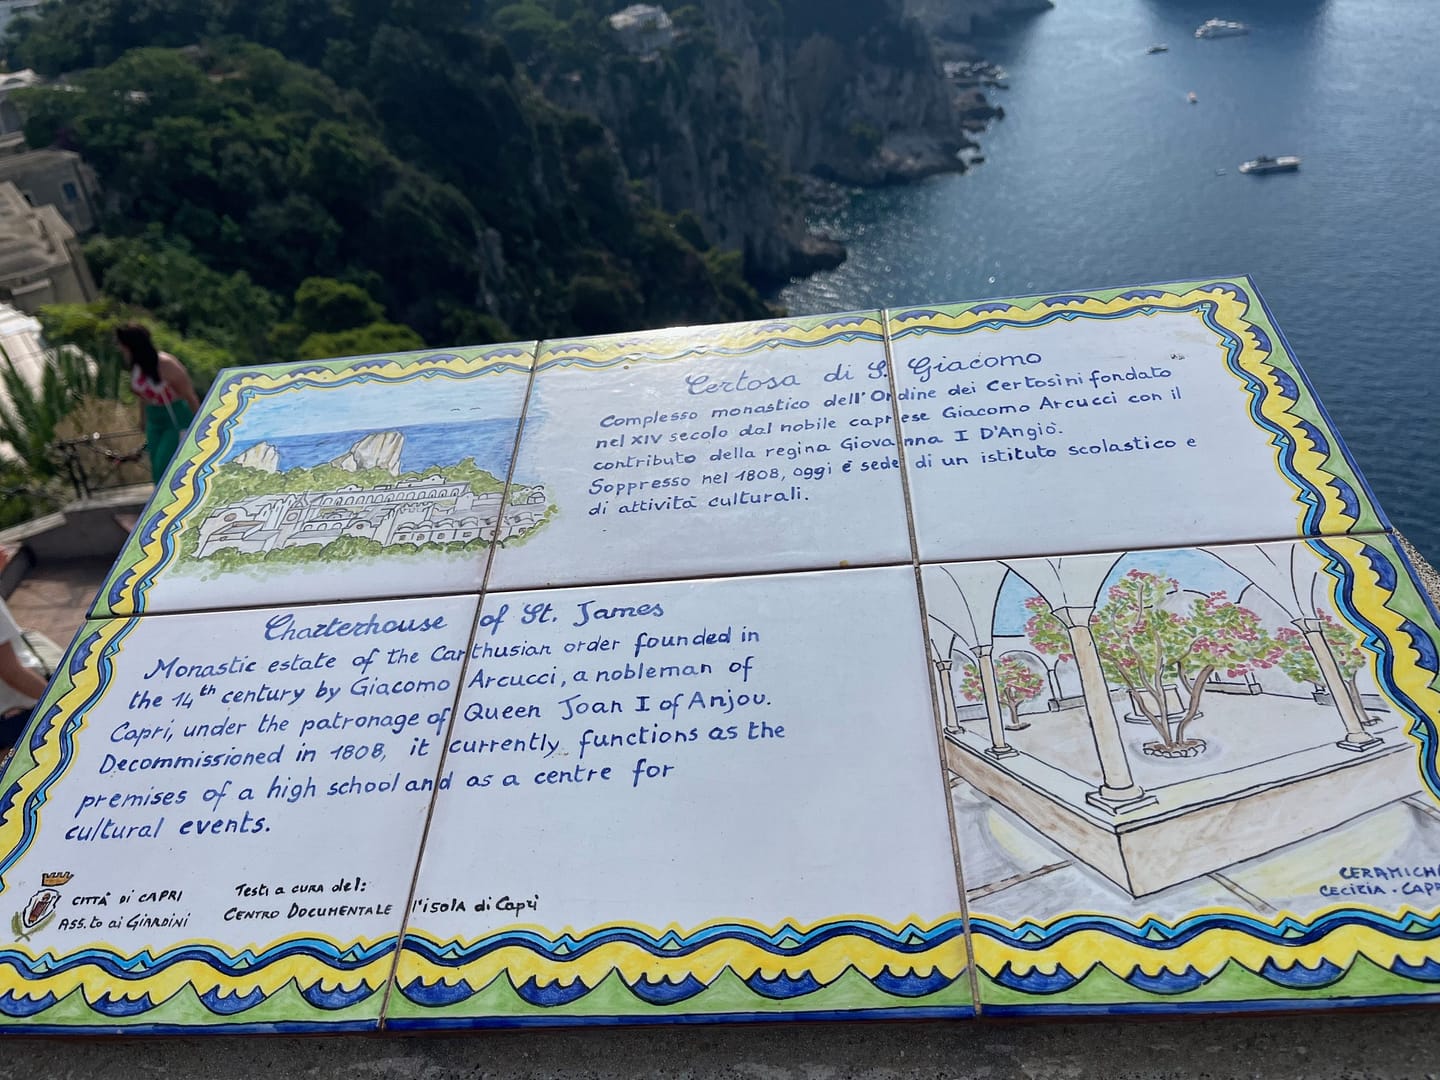 Certosa di S. Giacomo
Complesso monastico dell'Ordine dei Certosini fondato
nel XIV secolo dal nobile caprese Giacomo Arcucci con il
contributo della regina Giovanna I D'Angiò.
Soppresso nel 1808, oggi è sede di un istituto scolastico e
di attività culturali.
Charterhouse of St. James
Monastic estate of the Carthusian order founded in
the 14th century by Giacomo Arcucci, a nobleman of
Capri, under the patronage of Queen Joan I of Anjou.
Decommissioned in 1808, it currently functions as the
premises of a high school and as a centre for
cultural events.
CITTÀ DI CAPRI
ASS.to ai GIARDINI
Testi a cura del:
CENTRO DOCUMENTALE l'isola di Capri
CERAMICHE